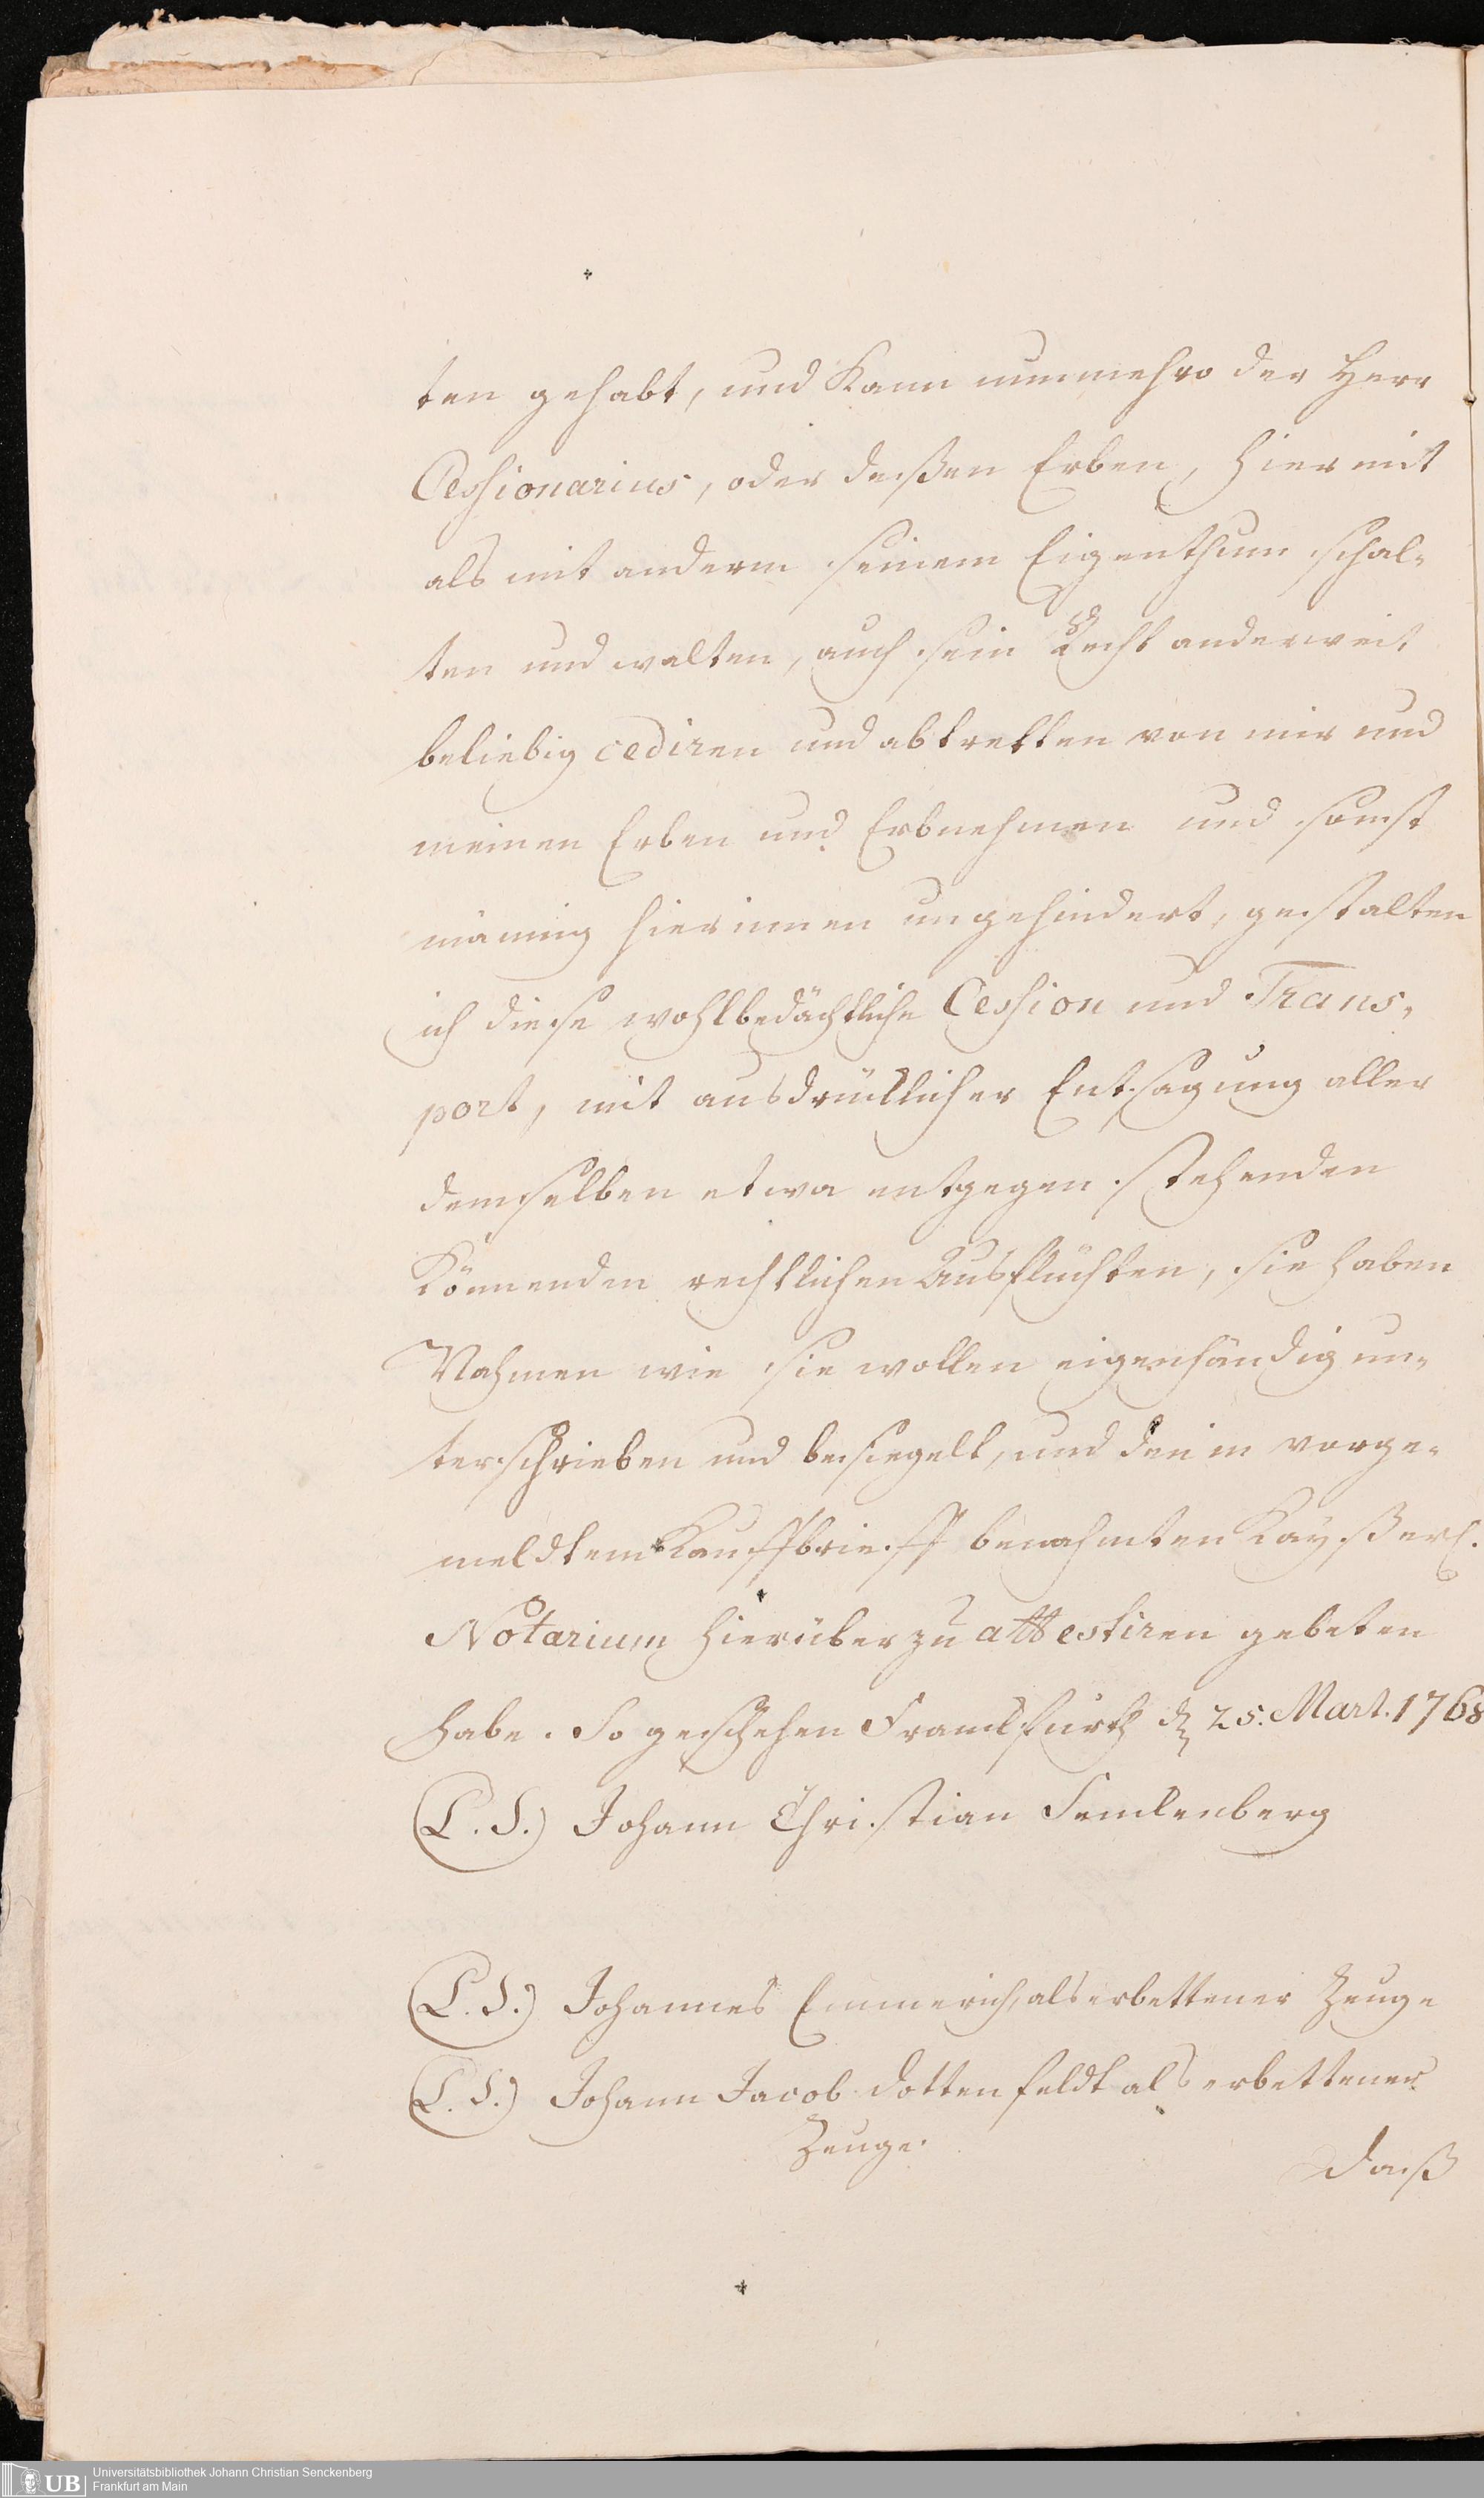 ten gehabt, und Kann nunmehro der Herr
Cessionarius, oder deßen Erben, hiermit
als mit anderm seinem Eigenthum schal-
ten und walten, auch sein Recht anderweit
beliebig cediren und abtretten von mir und
meinen Erben und Erbnehmen und sonst
männig hierinnen ungehindert, gestalten
ich diese wohlbedächtliche Cession und Trans-
port, mit ausdrücklicher Entsagung aller
demselben etwa entgegen stehenden
Könnenden rechtlichen Ausflüchten, sie haben
Nahmen wie sie wollen eigenhändig un-
terschrieben und besiegelt, und den in vorge-
meldtem Kauffbrieff benahmten Kayßerl.
Notarium hierüber zu attestiren gebeten
habe. So geschehen Franckfurth d. 25. Mart. 1768
(L. S.) Johann Christian Senckenberg
(L. S.) Johannes Emmerich, als erbettener Zeuge
(L. S.) Johann Jacob Dottenfeldt als erbettener
Zeuge.
Daß
UB Universitätsbibliothek Johann Christian Senckenberg
Frankfurt am Main